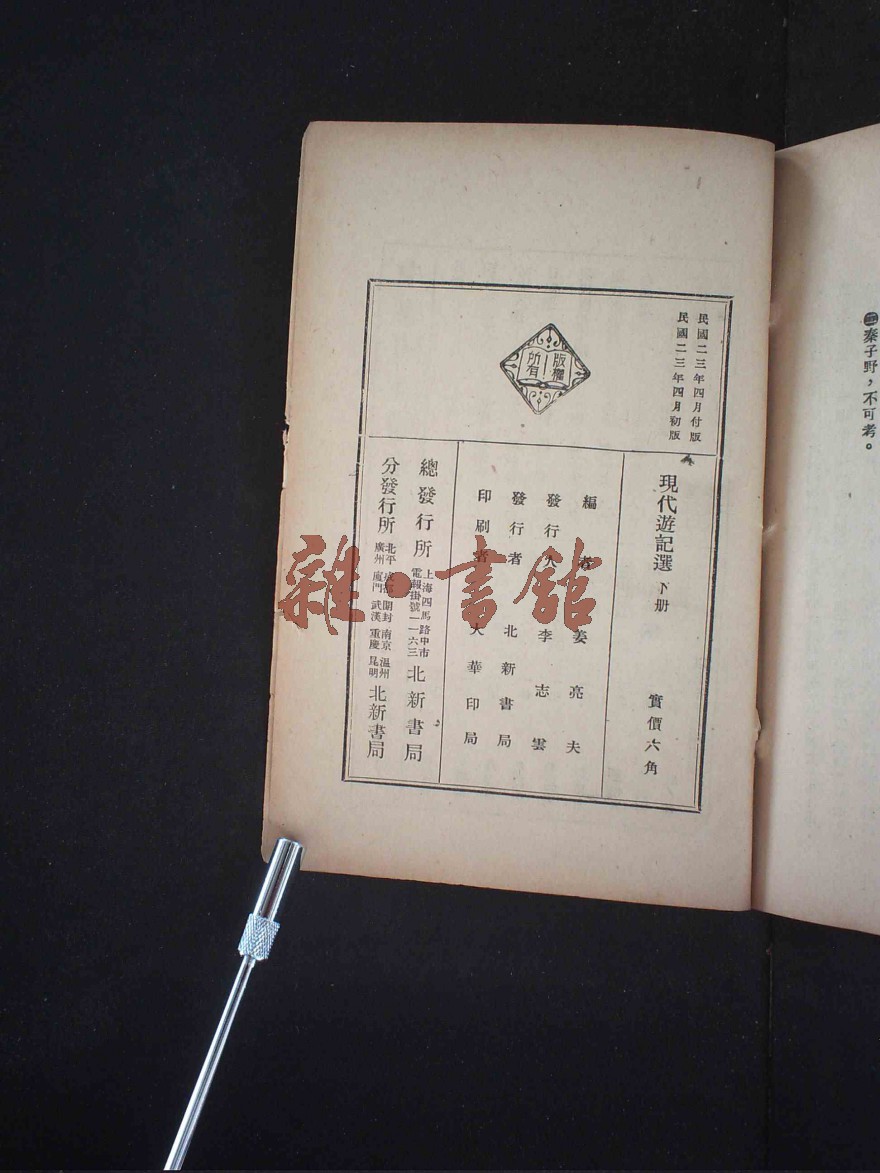 ㊂秦子野，不可考。
民國二三年四月付版
民國二三年四月初版
版權
所有
現代遊記選 下册
實價六角
編者 姜亮夫
發行人 李志雲
發行者 北新書局
印刷者 大華印局
總發行所 上海四馬路中市 電報掛號一一六三 北新書局
分發行所 北平 開封 南京 溫州 廣州 廈門 武漢 重慶 昆明 北新書局
雜·書館